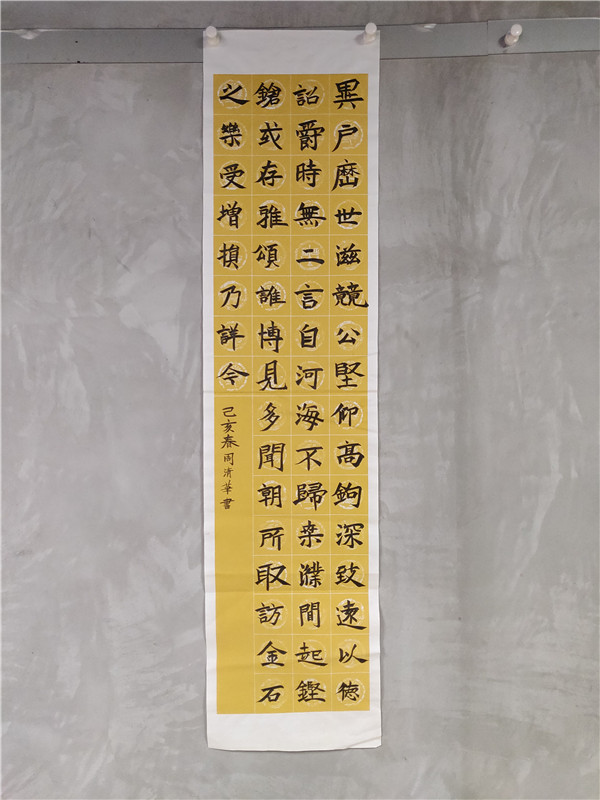 異戶歷世滋競公堅仰高鉤深致遠以德
詔爵時無二言自河海不歸桒濮間起鏗
鎗或存雅頌誰博見多聞朝所取訪金石
之樂受增損乃詳今
己亥春周清華書